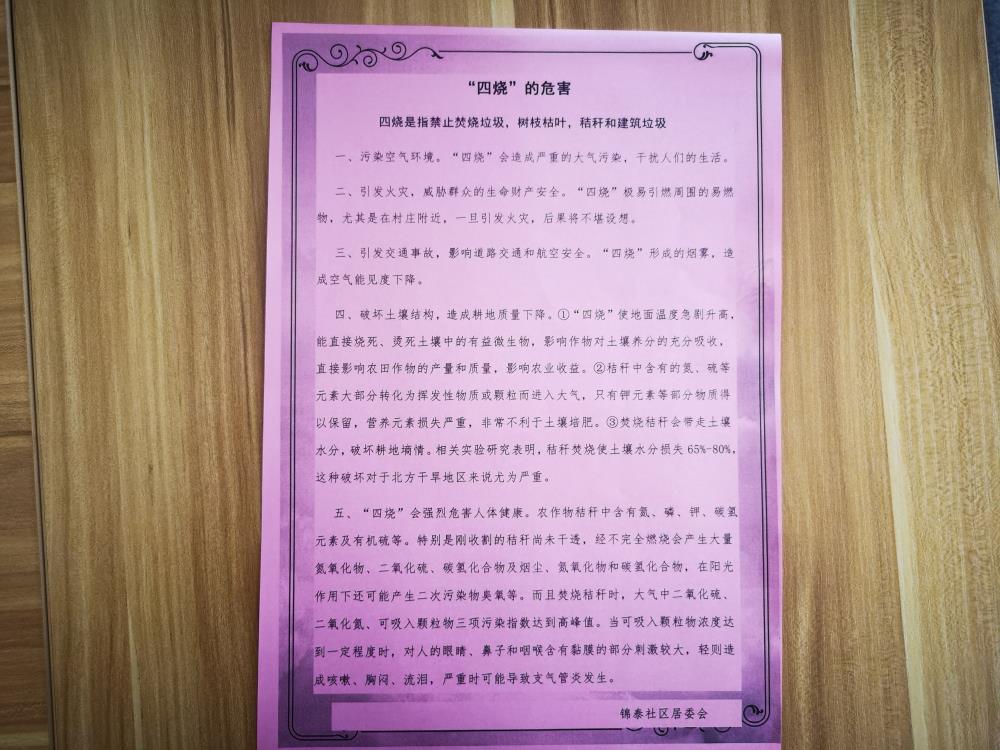 “四烧”的危害
四烧是指禁止焚烧垃圾，树枝枯叶，秸秆和建筑垃圾
一、污染空气环境。“四烧”会造成严重的大气污染，干扰人们的生活。
二、引发火灾，威胁群众的生命财产安全。“四烧”极易引燃周围的易燃
物，尤其是在村庄附近，一旦引发火灾，后果将不堪设想。
三、引发交通事故，影响道路交通和航空安全。“四烧”形成的烟雾，造
成空气能见度下降。
四、破坏土壤结构，造成耕地质量下降。①“四烧”使地面温度急剧升高，
能直接烧死、烫死土壤中的有益微生物，影响作物对土壤养分的充分吸收，
直接影响农田作物的产量和质量，影响农业收益。②秸秆中含有的氮、硫等
元素大部分转化为挥发性物质或颗粒而进入大气，只有钾元素等部分物质得
以保留，营养元素损失严重，非常不利于土壤培肥。③焚烧秸秆会带走土壤
水分，破坏耕地墒情。相关实验研究表明，秸秆焚烧使土壤水分损失65%-80%，
这种破坏对于北方干旱地区来说尤为严重。
五、“四烧”会强烈危害人体健康。农作物秸秆中含有氮、磷、钾、碳氢
元素及有机硫等。特别是刚收割的秸秆尚未干透，经不完全燃烧会产生大量
氮氧化物、二氧化硫、碳氢化合物及烟尘、氮氧化物和碳氢化合物，在阳光
作用下还可能产生二次污染物臭氧等。而且焚烧秸秆时，大气中二氧化硫、
二氧化氮、可吸入颗粒物三项污染指数达到高峰值。当可吸入颗粒物浓度达
到一定程度时，对人的眼睛、鼻子和咽喉含有黏膜的部分刺激较大，轻则造
成咳嗽、胸闷、流泪，严重时可能导致支气管炎发生。
锦泰社区居委会